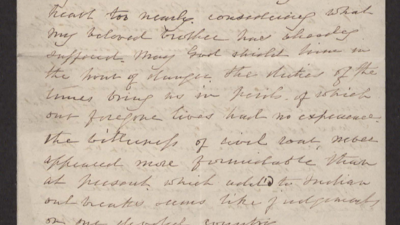 heart too nearly, considering what
my beloved brother has already
suffered. May God shield him in
the hour of danger. the duties of the
times bring us in perils of which
our foregone lives had no experience.
the bitterness of civil war, never
appeared more formidable than
at present, which add'd to Indian
outbreaks seems like judgements
on our devoted country